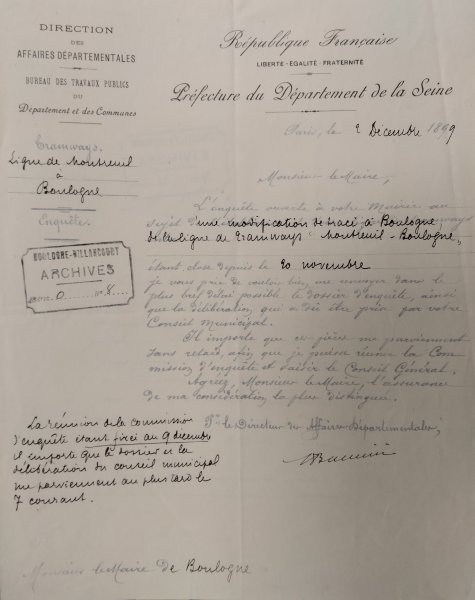 DIRECTION
DES
AFFAIRES DÉPARTEMENTALES
BUREAU DES TRAVAUX PUBLICS
DU
Département et des Communes
République Française
LIBERTE-EGALITE-FRATERNITE
Préfecture du Département de la Seine
Paris, le 2 Décembre 1899
Tramways.
Ligne de Montreuil
à
Boulogne
Enquête.
BOULOGNE-BILLANCOURT
ARCHIVES
O N° 8
Monsieur le Maire,
L'enquête ouverte à votre Mairie au
sujet d'une modification de tracé à Boulogne
de la ligne de Tramways "Montreuil-Boulogne"
étant close depuis le 20 novembre
je vous prie de vouloir bien, me renvoyer dans le
plus bref délai possible, le dossier d'enquête, ainsi
que la délibération, qui a dû être prise par votre
Conseil Municipal.
Il importe que ces pièces me parviennent
sans retard, afin que je puisse réunir la Com-
mission d'enquête et saisir le Conseil Général.
Agréez, Monsieur le Maire, l'assurance
de ma considération la plus distinguée.
Pr le Directeur des Affaires Départementales,
La réunion de la commission
d'enquête étant fixée au 9 decembre
il importe que le dossier et la
délibération du conseil municipal
me parviennent au plus tard le
7 courant.
Monsieur le Maire de Boulogne